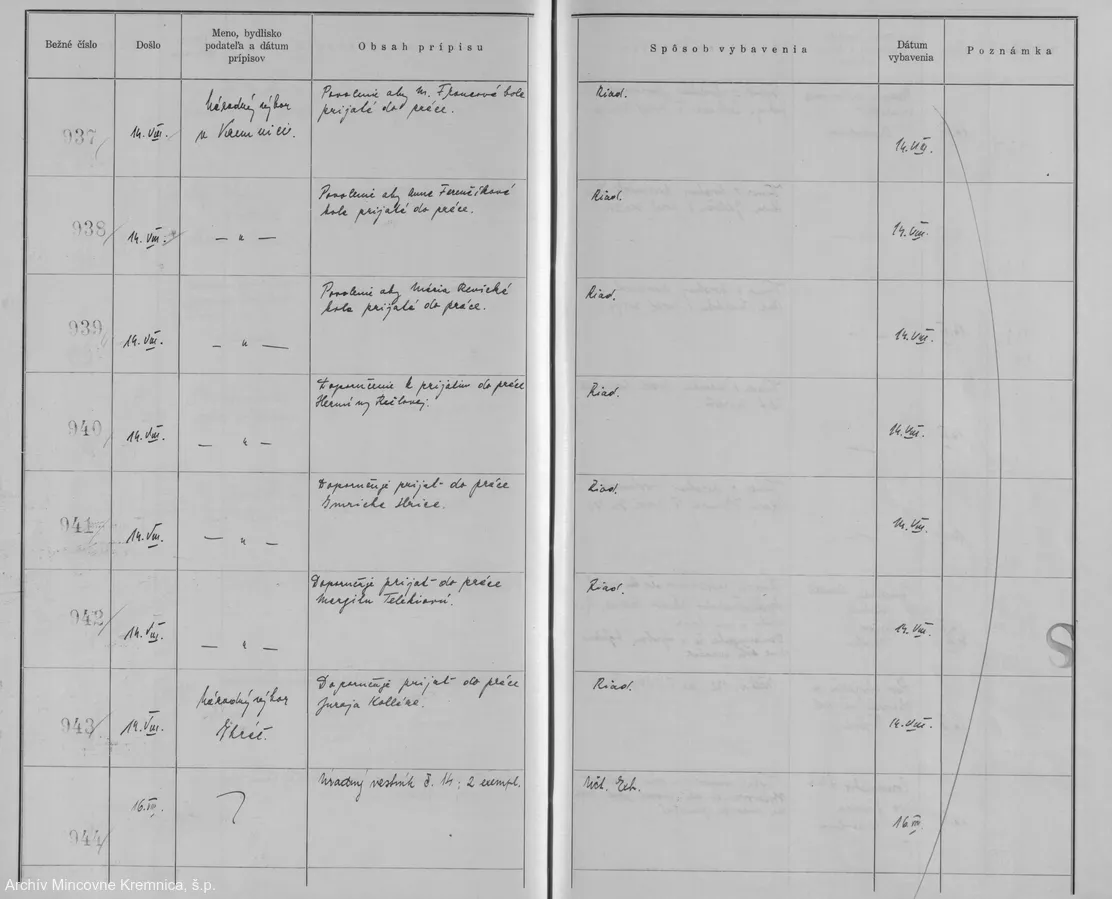 Bežné číslo
Došlo
Meno, bydlisko
podateľa a dátum
prípisov
Obsah prípisu
Spôsob vybavenia
Dátum
vybavenia
Poznámka
937
14. VIII.
Národný výbor
v Kremnici.
Povolenie aby M. Francová bola
prijatá do práce.
Riad.
14. VIII.
938
14. VIII.
— „ —
Povolenie aby Anna Ferenčíková
bola prijatá do práce.
Riad.
14. VIII.
939
14. VIII.
— „ —
Povolenie aby Mária Revická
bola prijatá do práce.
Riad.
14. VIII.
940
14. VIII.
— „ —
Doporučenie k prijatiu do práce
Hermíny
Riad.
14. VIII.
941
14. VIII.
— „ —
Doporučuje prijať do práce
Imricha
Riad.
14. VIII.
942
14. VIII.
— „ —
Doporučuje prijať do práce
Margitu Telekiovú.
Riad.
14. VIII.
943
14. VIII.
Národný výbor
Doporučuje prijať do práce
Juraja Kollára.
Riad.
14. VIII.
944
16. VIII.
Úradný vestník č. 14; 2 exempl.
16. VIII.
Archív Mincovne Kremnica, š.p.